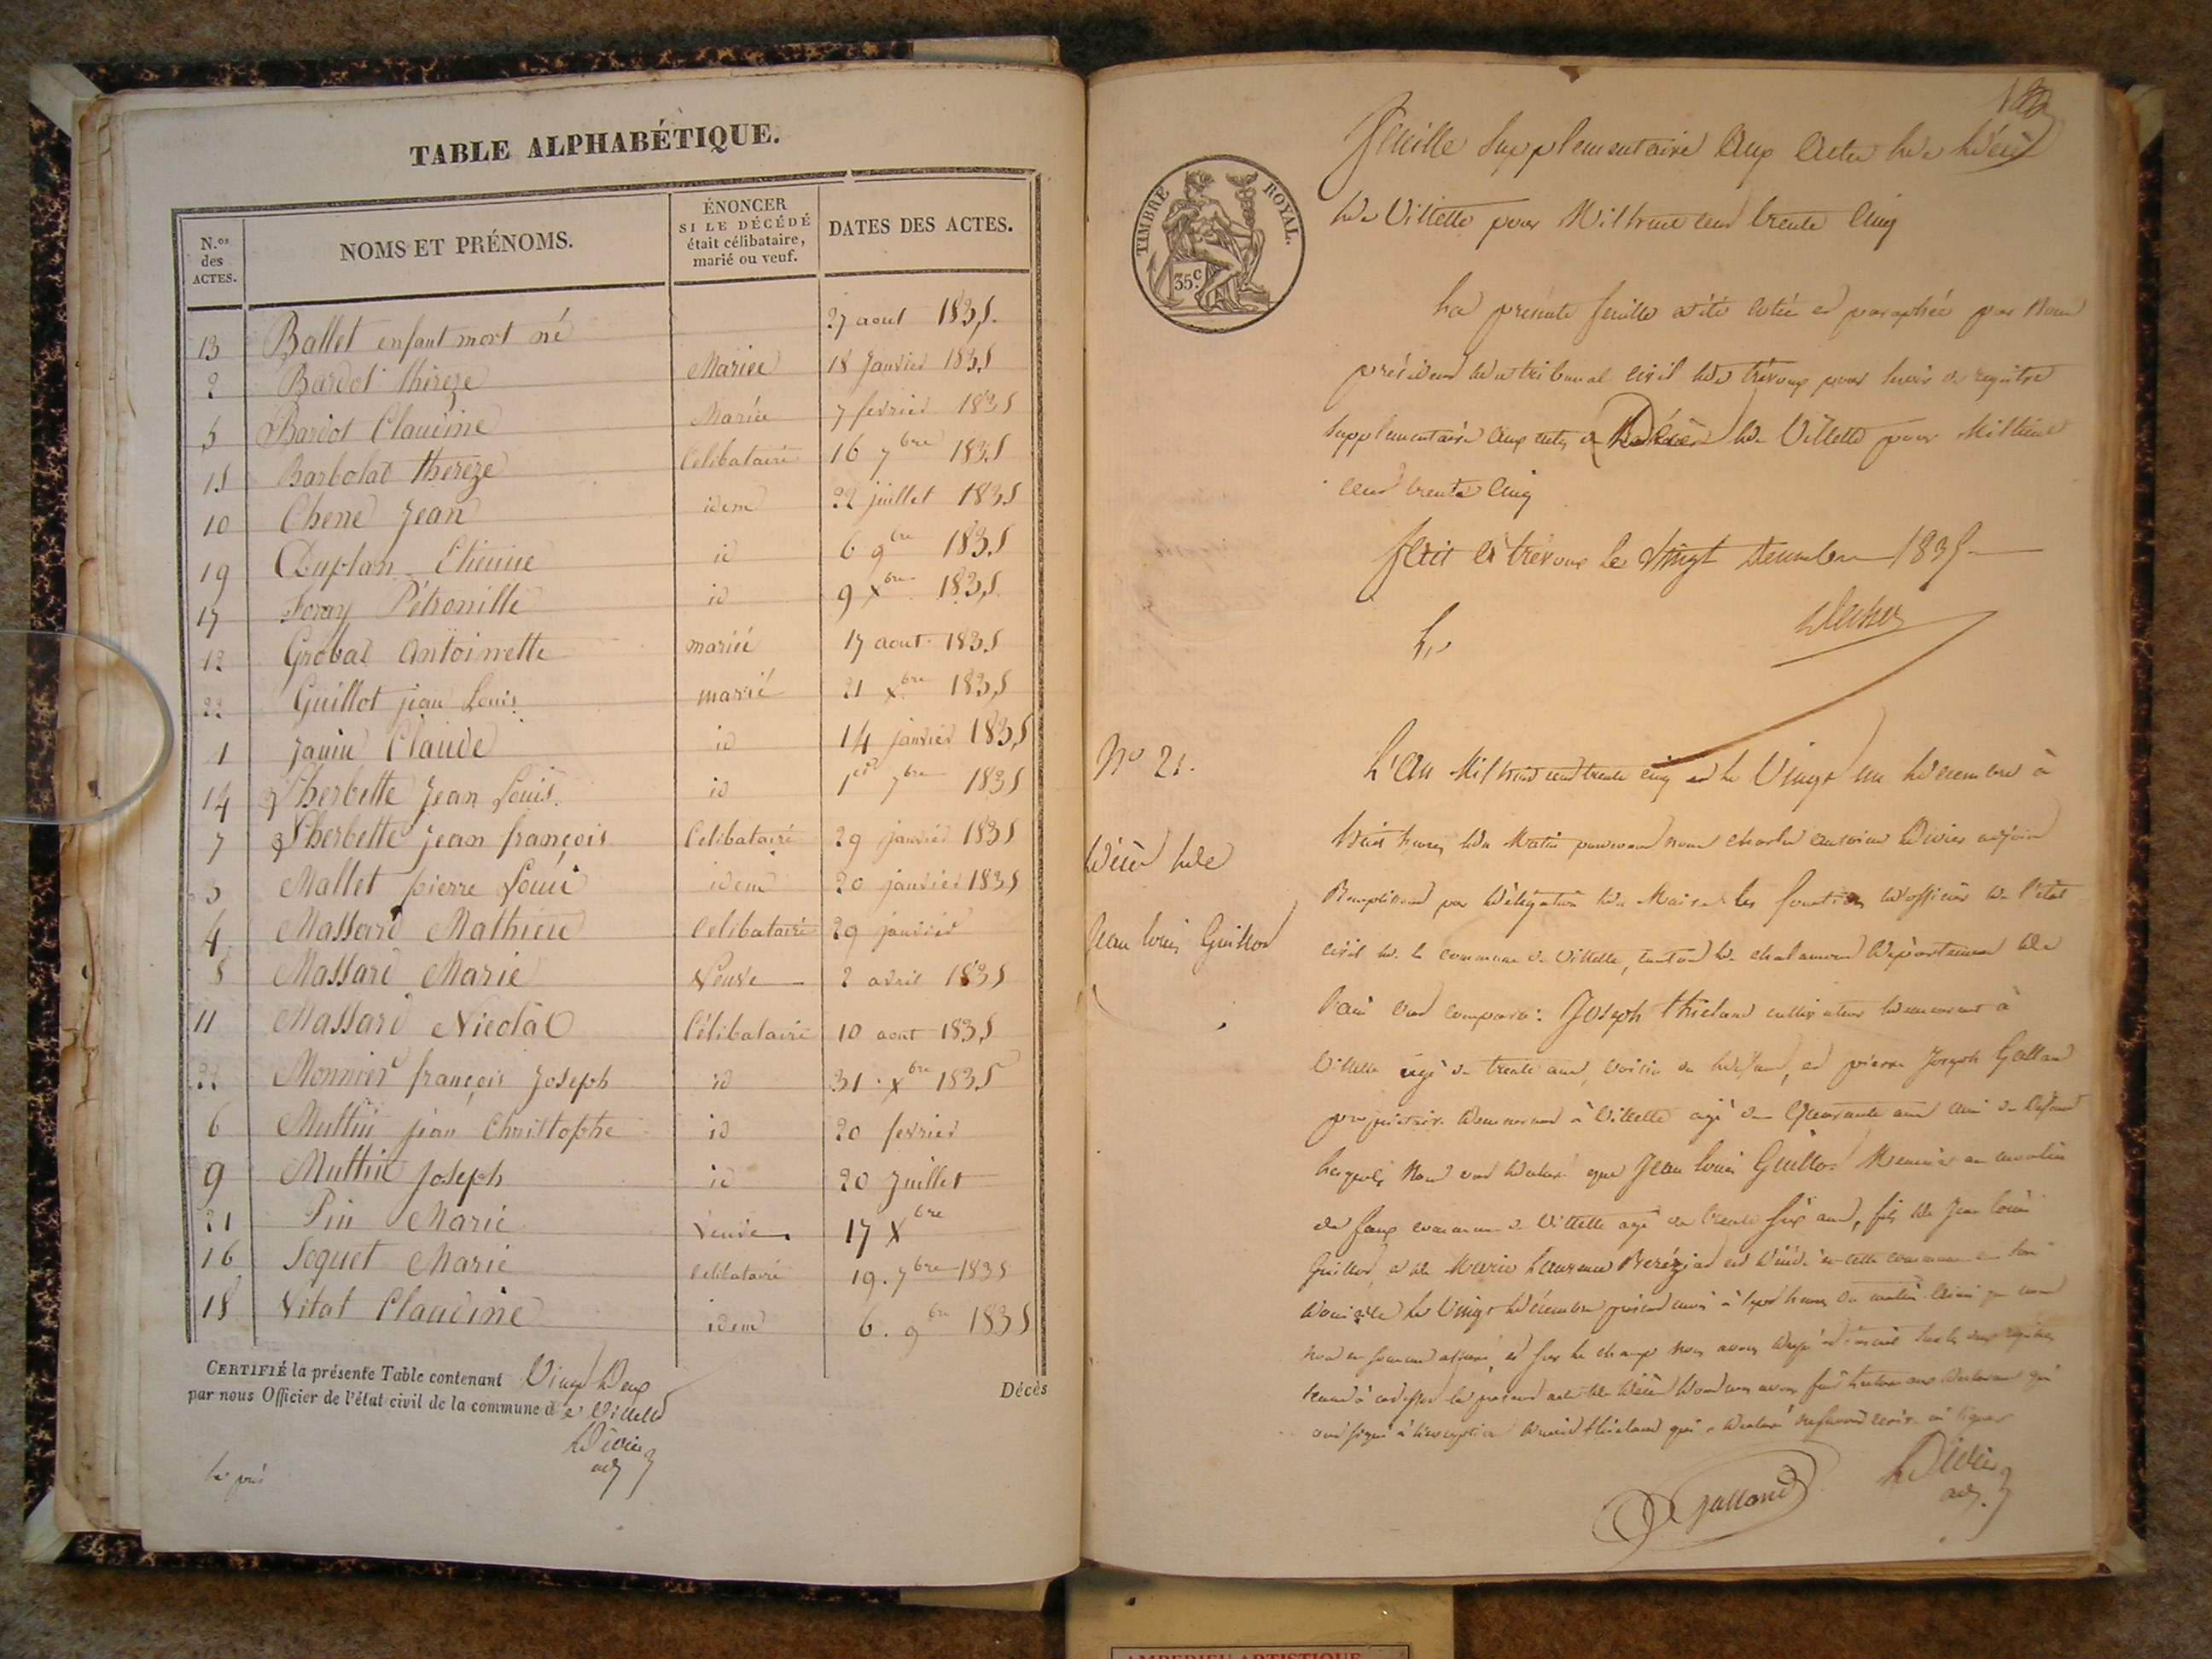 TABLE ALPHABÉTIQUE.
N.os des ACTES.
NOMS ET PRÉNOMS.
ÉNONCER SI LE DÉCÉDÉ était célibataire, marié ou veuf.
DATES DES ACTES.
13 Ballet enfant mort né 27 aout 1835.
2 Bardot thereze Mariee 18 Janvier 1835
5 Bardot Claudine Mariée 7 fevrier 1835
15 Barbolat thereze Celibataire 16 7bre 1835
10 Chene Jean idem 22 juillet 1835
19 Duplan Etienne id 6 9bre 1835
17 Foray Pétronille id 9 Xbre 1835
12 Grobat Antoinette mariée 17 aout 1835
22 Guillot jean Louis marié 21 Xbre 1835
1 Janin Claude id 14 janvier 1835
14 Lherbette Jean Louis id 1er 7bre 1835
7 Lherbette Jean françois Celibataire 29 janvier 1835
3 Mallet pierre Louis idem 20 janvier 1835
4 Massard Mathieu Celibataire 29 janvier
8 Massard Marie Veuve 2 avril 1835
11 Massard Nicolas Célibataire 10 aout 1835
22 Monnier françois Joseph id 31 Xbre 1835
6 Muttin jean Christophe id 20 fevrier
9 Muttin Joseph id 20 Juillet
21 Pin Marie Veuve 17 Xbre
16 Soquet Marie Celibataire 19. 7bre 1835
18 Vitat Claudine idem 6. 9bre 1835
CERTIFIÉ la présente Table contenant Vingt Deux
par nous Officier de l'état civil de la commune de Villette
Décès
Didier
adj
Feuille Supplementaire Aux Actes de Décès
de Villette pour Mil huit cent trente Cinq
TIMBRE ROYAL.
35.c
La présente feuille a été cotée et paraphée par Nous
président du tribunal civil de trévoux pour servir de registre
supplementaire aux actes de Décès de Villette pour Mil huit
cent trente Cinq
fait à trévoux le Vingt Decembre 1835
No 21.
Décès de
Jean Louis Guillot
L'An Mil huit cent trente cinq et le Vingt un decembre à
huit heures du Matin pardevant nous charles antoine Didier adjoint
Remplissant par délégation du Maire les fonctions d'officier de l'état
civil de la commune de Villette, canton de chalamont département de
l'ain ont comparu: Joseph cultivateur demeurant à
Villette agé de trente ans, voisin du défunt, et pierre Joseph Galland
propriétaire demeurant à Villette agé de Quarante ans ami du Defunt
Lesquels Nous ont declaré que Jean Louis Guillot Meunier au moulin
commune de Villette agé de trente six ans, fils de Jean Louis
Guillot et de Marie Laurence est décédé en cette commune en son
domicile le Vingt Décembre présent mois à sept heures du matin ainsi que nous
nous en sommes assuré, et sur le champ nous avons
le présent acte de décès dont nous avons fait lecture aux declarants qui
ont signé à l'exception dudit qui a declaré ne savoir écrire ni signer
Galland
Didier
adj.
AMBERIEU ARTISTIQUE